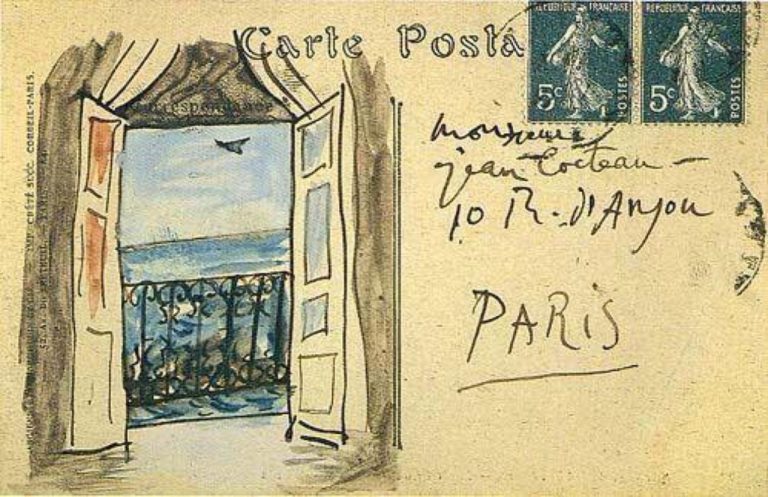 Carte Posta
RÉPUBLIQUE FRANÇAISE
5c
POSTES
RÉPUBLIQUE FRANÇAISE
5c
POSTES
Correspondance
CRÉTÉ SUCC. CORBEIL-PARIS.
Monsieur
Jean Cocteau —
10 R. d'Anjou
PARIS